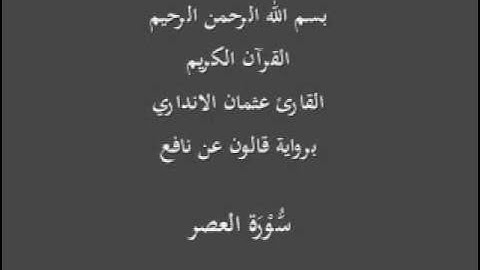 بسم الله الرحمن الرحيم
القرآن الكريم
القارئ عثمان الانداري
برواية قالون عن نافع
سُّوْرَة العصر